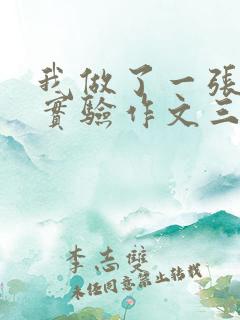 我做了一張
實驗作文三
李志雙
未经同意禁止转载